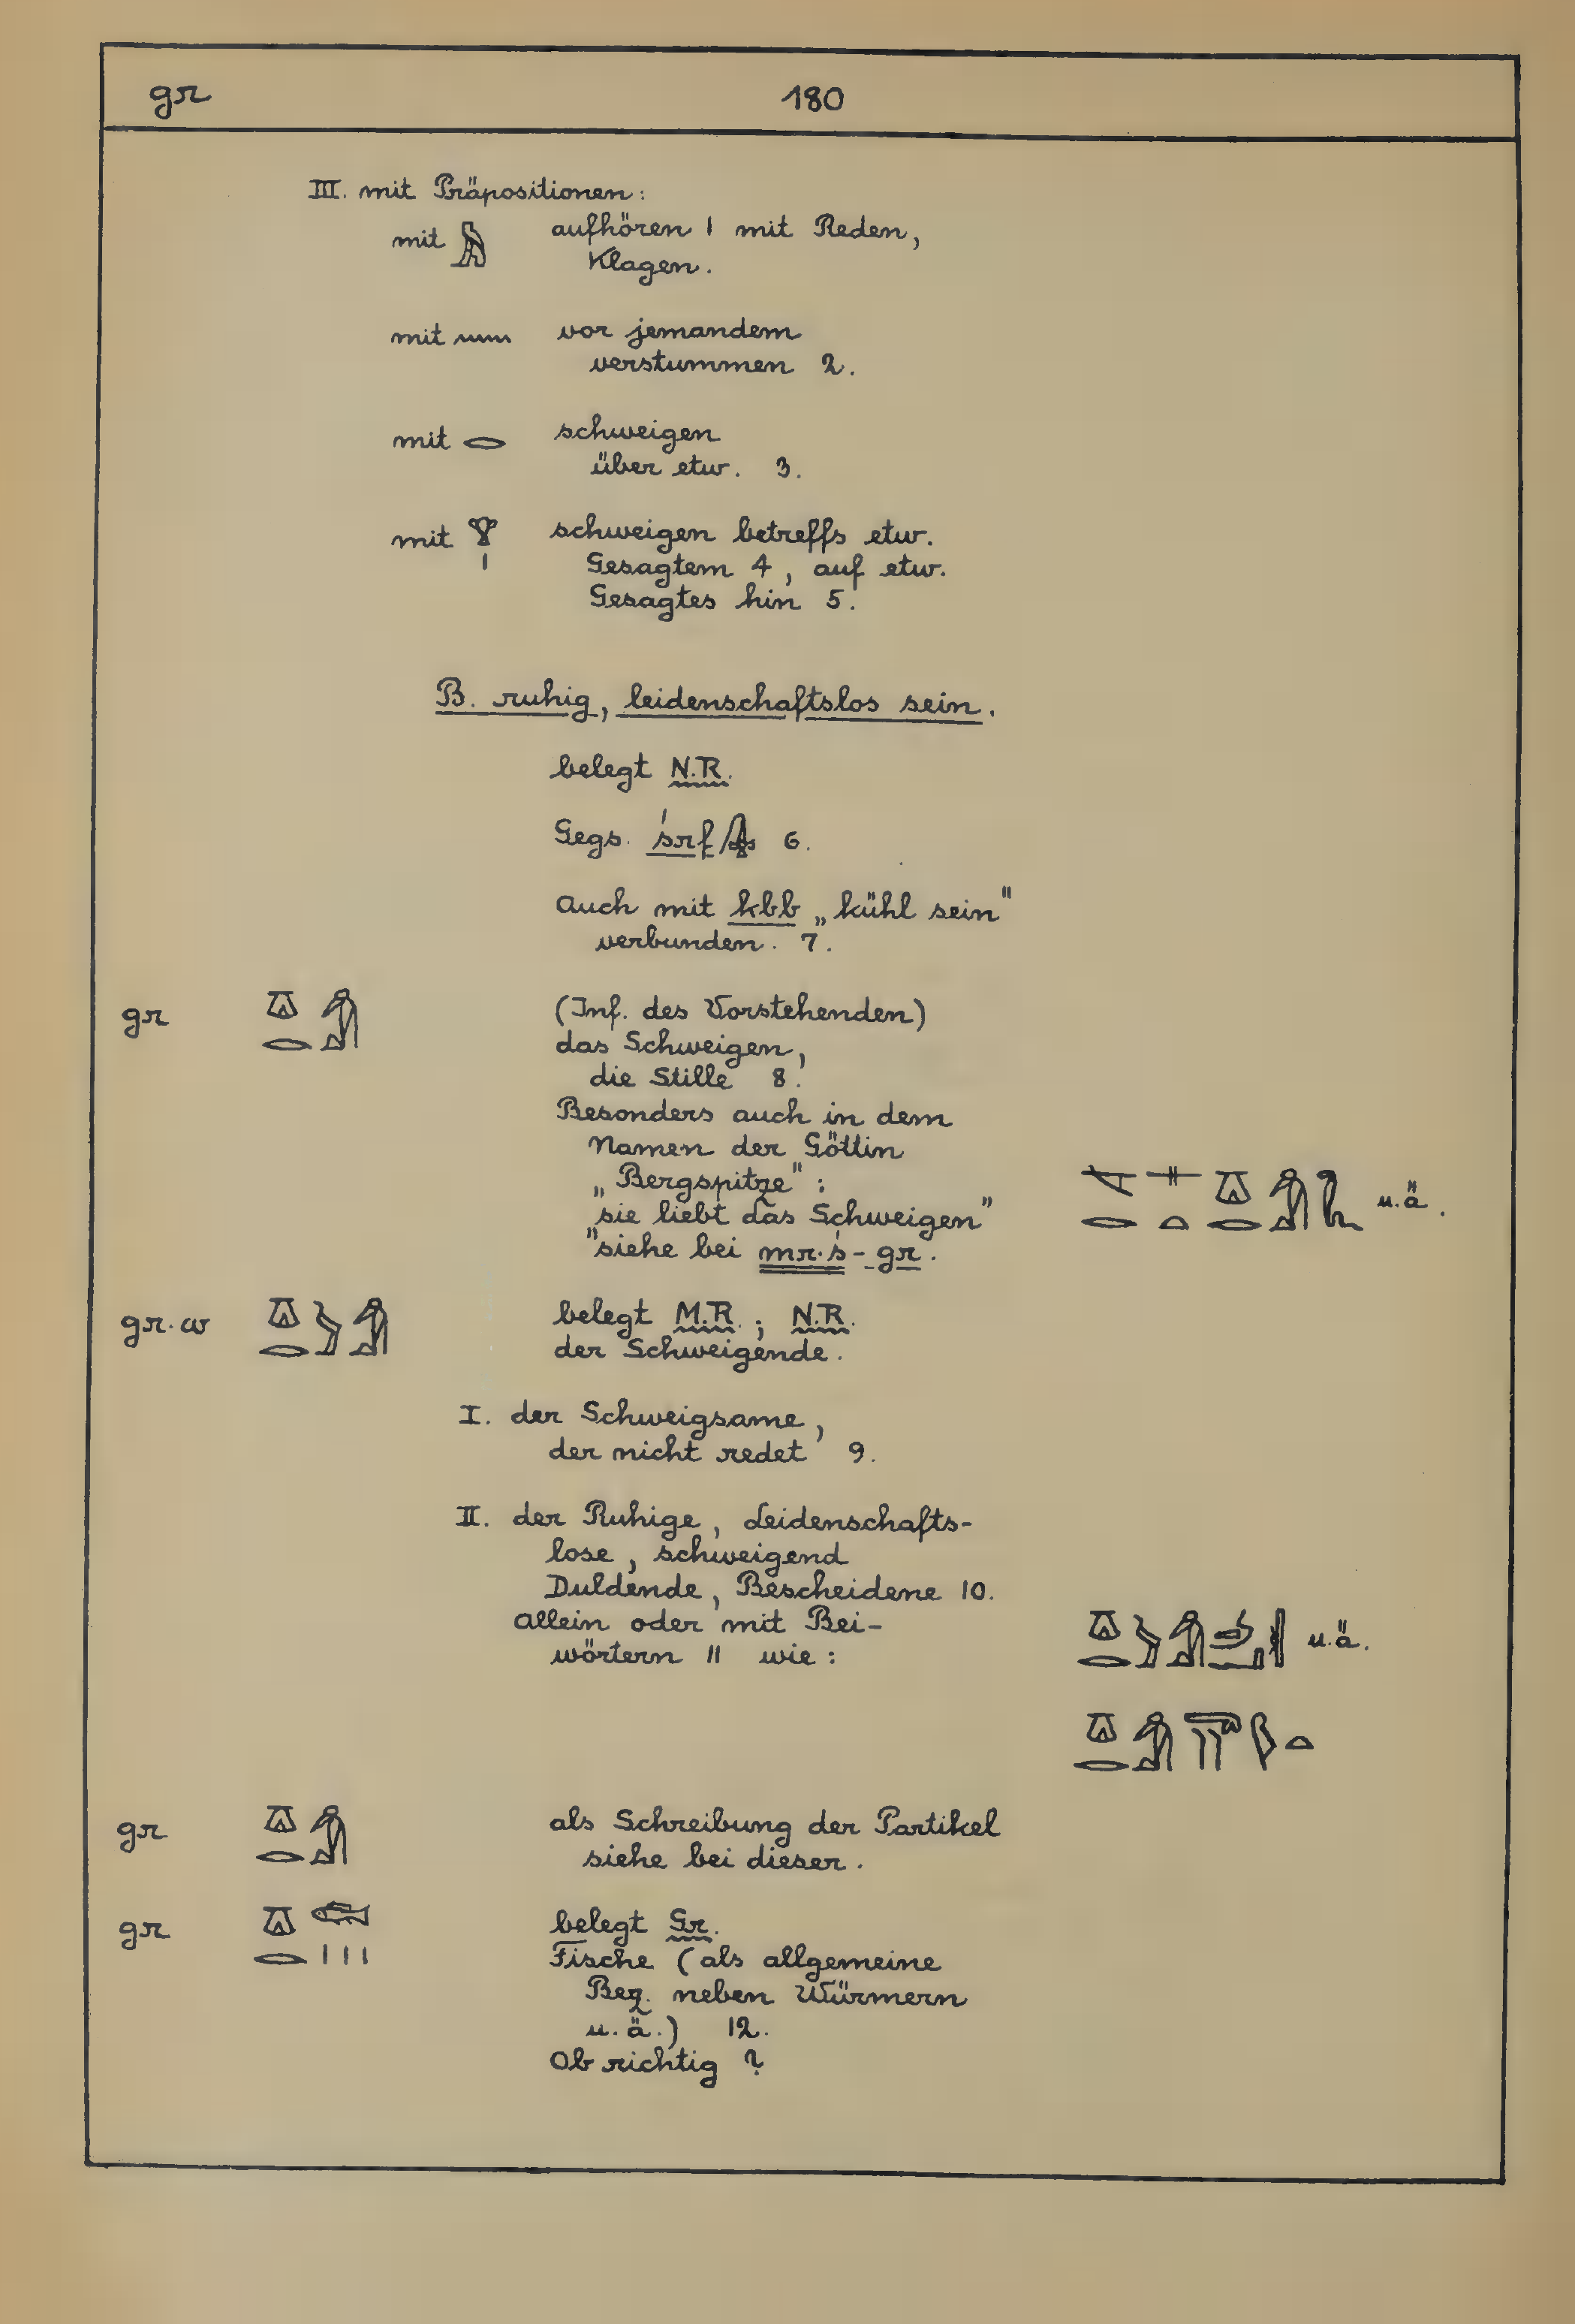 gr 180
III. mit Präpositionen:
mit 𓅓 aufhören 1 mit Reden,
Klagen.
mit 𓈖 vor jemandem
verstummen 2.
mit 𓂋 schweigen
über etw. 3.
mit 𓁷𓏤 schweigen betreffs etw.
Gesagtem 4, auf etw.
Gesagtes hin 5.
B. ruhig, leidenschaftslos sein.
belegt N.R.
Gegs. śrf 6.
Auch mit kbb „kühl sein"
verbunden. 7.
gr 𓎼𓂋𓀁 (Inf. des Vorstehenden)
das Schweigen,
die Stille 8.
Besonders auch in dem
Namen der Göttin
„Bergspitze":
„sie liebt das Schweigen" u.ä.
siehe bei mr·ś-gr.
gr·w belegt M.R.; N.R.
der Schweigende.
I. der Schweigsame,
der nicht redet 9.
II. der Ruhige, Leidenschafts-
lose, schweigend
Duldende, Bescheidene 10.
Allein oder mit Bei- u.ä.
wörtern 11 wie:
gr als Schreibung der Partikel
siehe bei dieser.
gr belegt Gr.
Fische (als allgemeine
Bez. neben Würmern
u.ä.) 12.
Ob richtig?